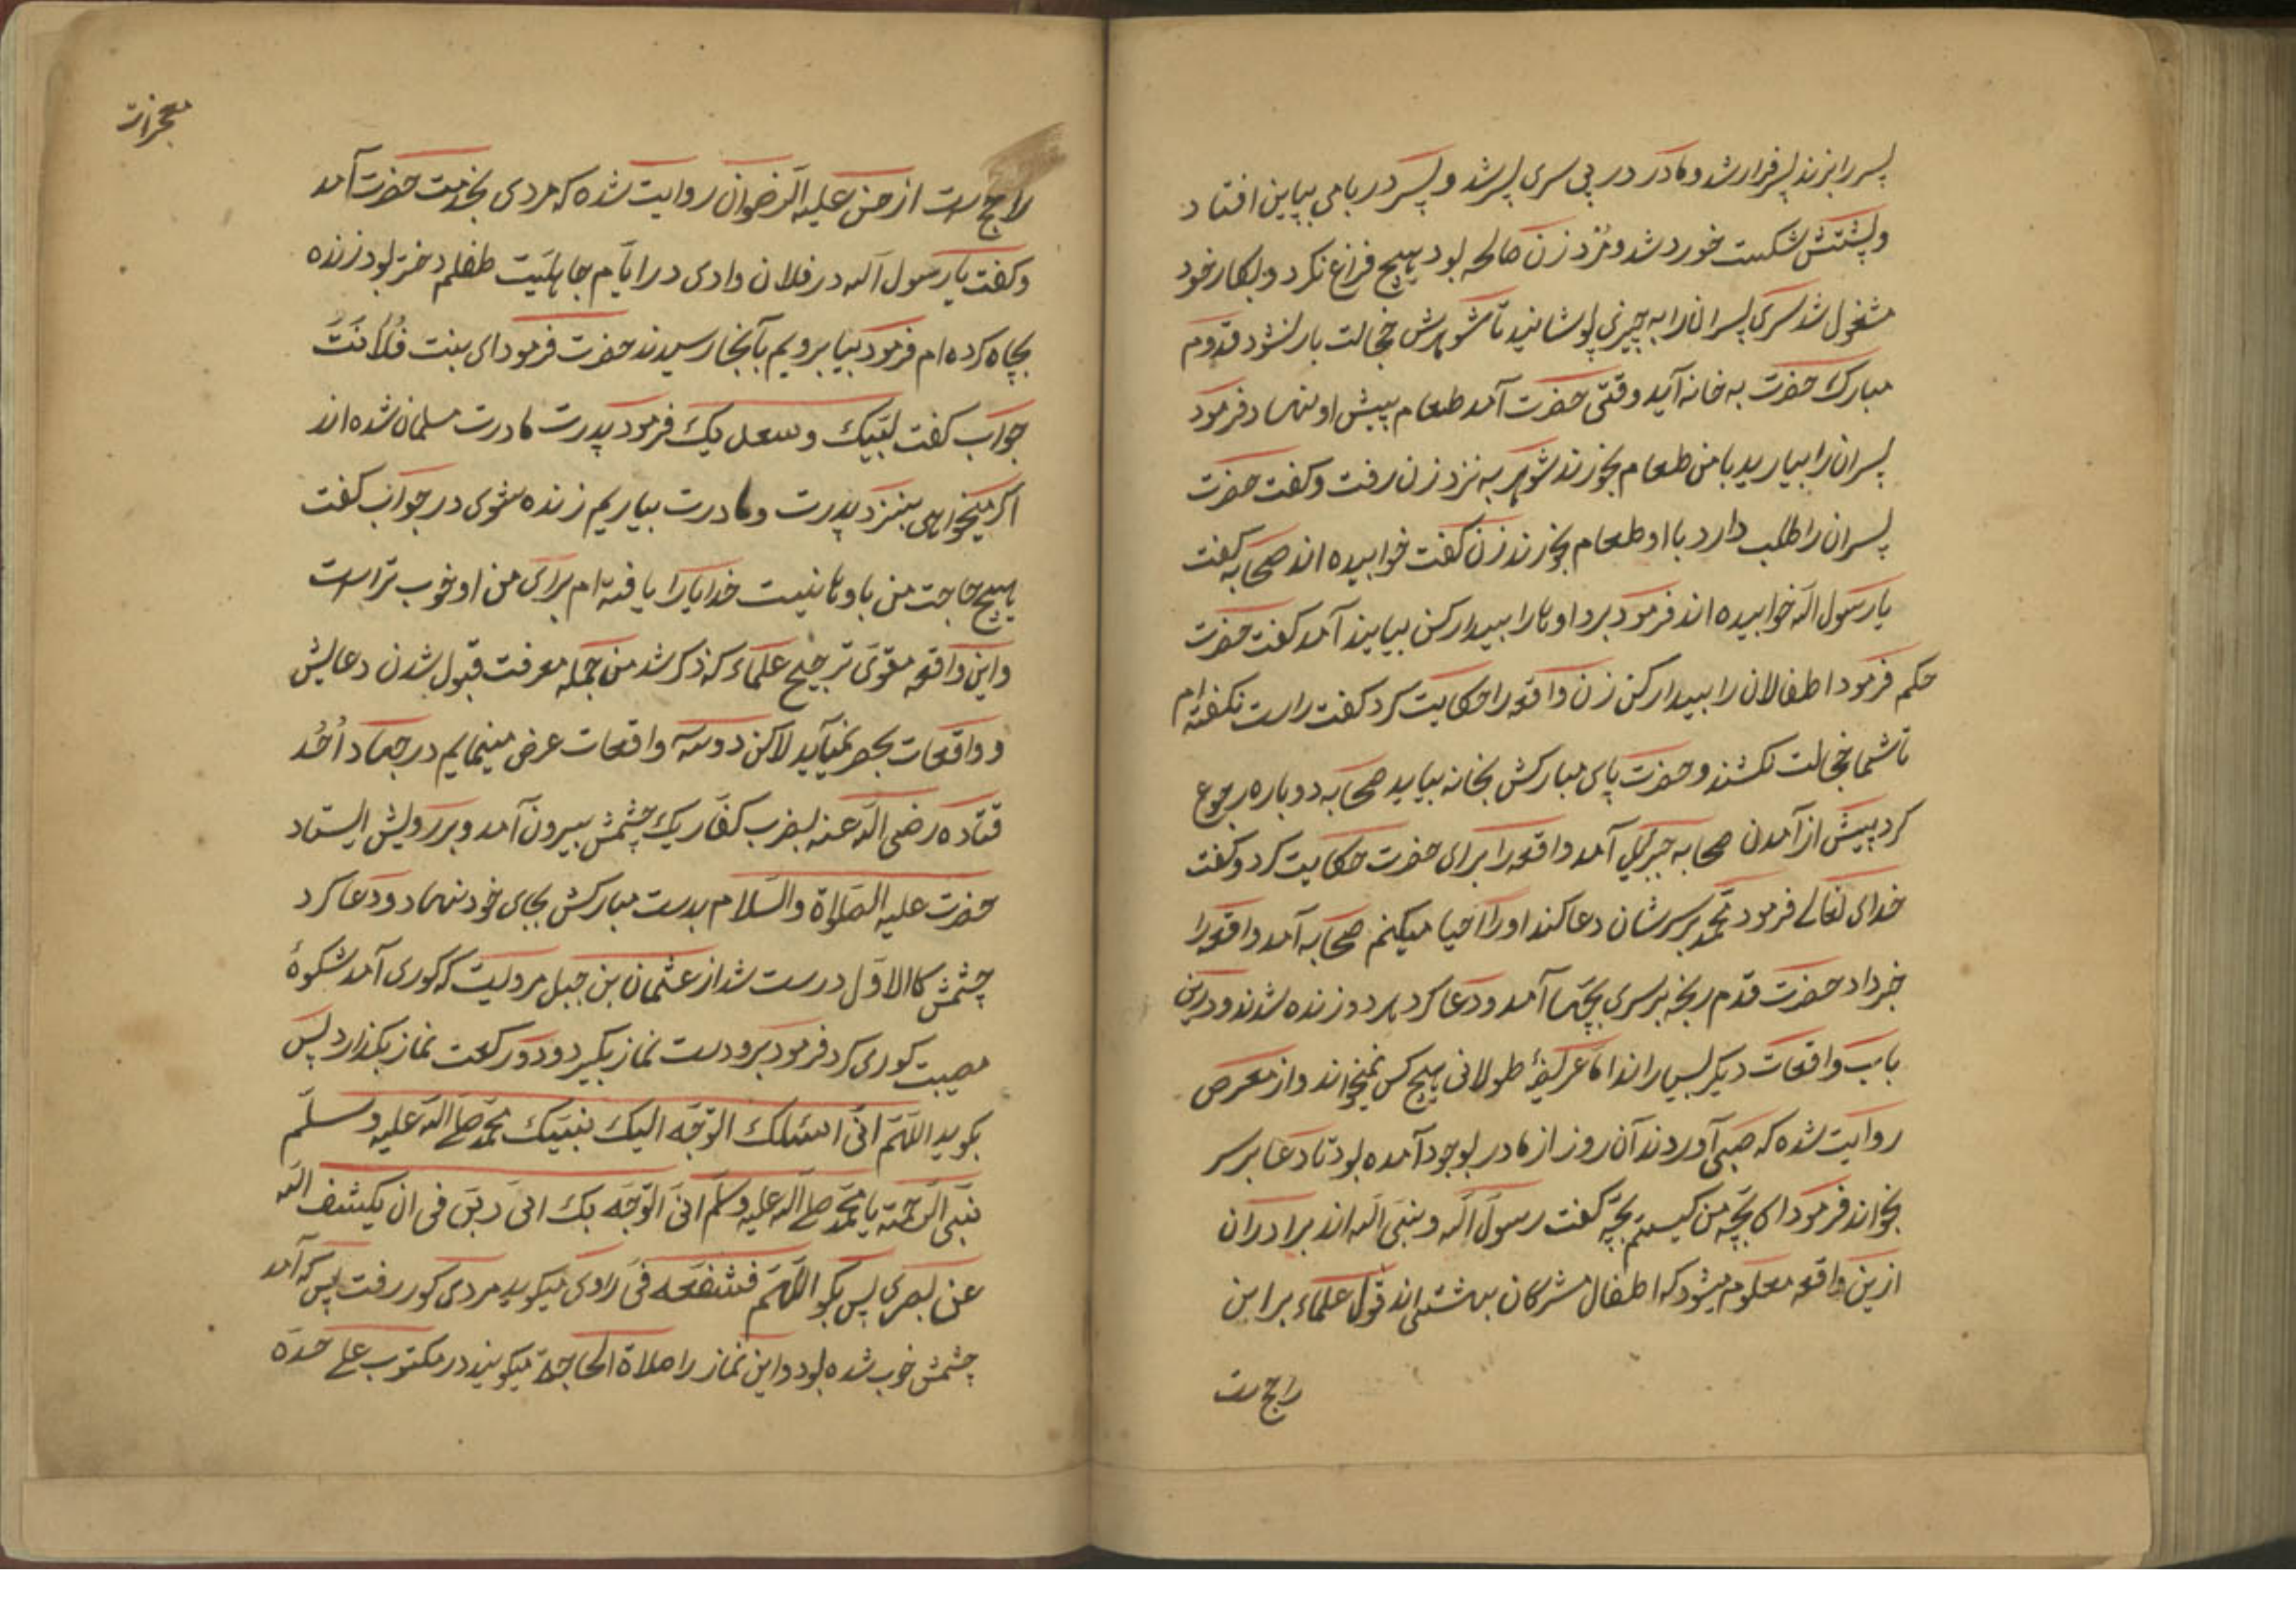 پسر را بزند پسر فرار شد و مادر در پی سری پسر شد و پسر در بامی بپایین افتاد
و پشتش شکست خورد شد و مُرد زن صالحه بود هیچ فزاع نکرد و بکار خود
مشغول شد سری پسران را به چیزی پوشانید تا شوهرش خجالت بار نشود قدوم
مبارک حضرت به خانه آید وقتی حضرت آمد طعام پیش او نهاد فرمود
پسران را بیارید با من طعام بخورند شوهر به نزد زن رفت و گفت حضرت
پسران را طلب دارد با او طعام بخورند زن گفت خوابیده اند صحابه گفت
یا رسول الله خوابیده اند فرمود برو اوها را بیدار کن بیایند آمد گفت حضرت
حکم فرمود اطفالان را بیدار کن زن واقعه را حکایت کرد گفت راست نگفته ام
تا شما خجالت نکشند و حضرت پای مبارکش بخانه بیاید صحابه دوباره رجوع
کرد پیش از آمدن صحابه جبریل آمد واقعه را برای حضرت حکایت کرد و گفت
خدای تعالی فرمود محمد بر سرشان دعا کند او را احیا میکنم صحابه آمد واقعه را
خبر داد حضرت قدم رنجه بر سری بچها آمد و دعا کرد هر دو زنده شدند و در این
باب واقعات دیگر بسیارند اما عریضهٔ طولانی هیچ کس نمیخواند و از معرض
روایت شده که صبی آوردند آن روز از مادر بوجود آمده بود تا دعا بر سر
بخواند فرمود ای بچه من کیستم بچه گفت رسول الله و نبی الله اند برادران
ازین واقعه معلوم میشود که اطفال مشرکان بهشتی اند قول علماء بر این
راج ست
معجزات
راج ست از حسن علیه الرضوان روایت شده که مردی بخدمت حضرت آمد
و گفت یا رسول الله در فلان وادی در ایّام جاهلیت طفلم دختر بود زنده
بچاه کرده ام فرمود بیا برویم بآنجا رسیدند حضرت فرمود ای بنت فُلاَنَتَ
جواب گفت لبّیک و سعدیک فرمود پدرت مادرت مسلمان شده اند
اگر میخواهی بنزد پدرت و مادرت بیاریم زنده شوی در جواب گفت
هیچ حاجت من باوها نیست خدایرا یافته ام برای من او خوب تر است
و این واقعه مقوّی ترجیح علماء که ذکر شد من جمله معرفت قبول شدن دعایش
و واقعات بحصر نمیآید لاکن دو سه واقعات عرض مینمایم در جهاد اُحُد
قتاده رضی الله عنه بضرب کفّار یک چشمش بیرون آمد و بر رویش ایستاد
حضرت علیه الصّلاة والسّلام بدست مبارکش بجای خود نهاد و دعا کرد
چشمش کالاوّل درست شد از عثمان بن جبل مرویست که کوری آمد شکوهٔ
مصیبت کوری کرد فرمود برو دست نماز بگیر دو رکعت نماز بگذار پس
بگوید اللّهمّ انّی اسئلک اتوجّه الیک بنبیّک محمّد صلی الله علیه وسلّم
نبیّ الرّحمة یا محمّد صلی الله علیه وسلّم انّی اتوجّه بک الی ربّی فی ان یکشف الله
عن بصری پس بگو اللّهمّ فشفعه فیّ راوی میگوید مردی کور رفت پس که آمد
چشمش خوب شده بود و این نماز را صلاة الحاجة میگویند در مکتوب علی حده